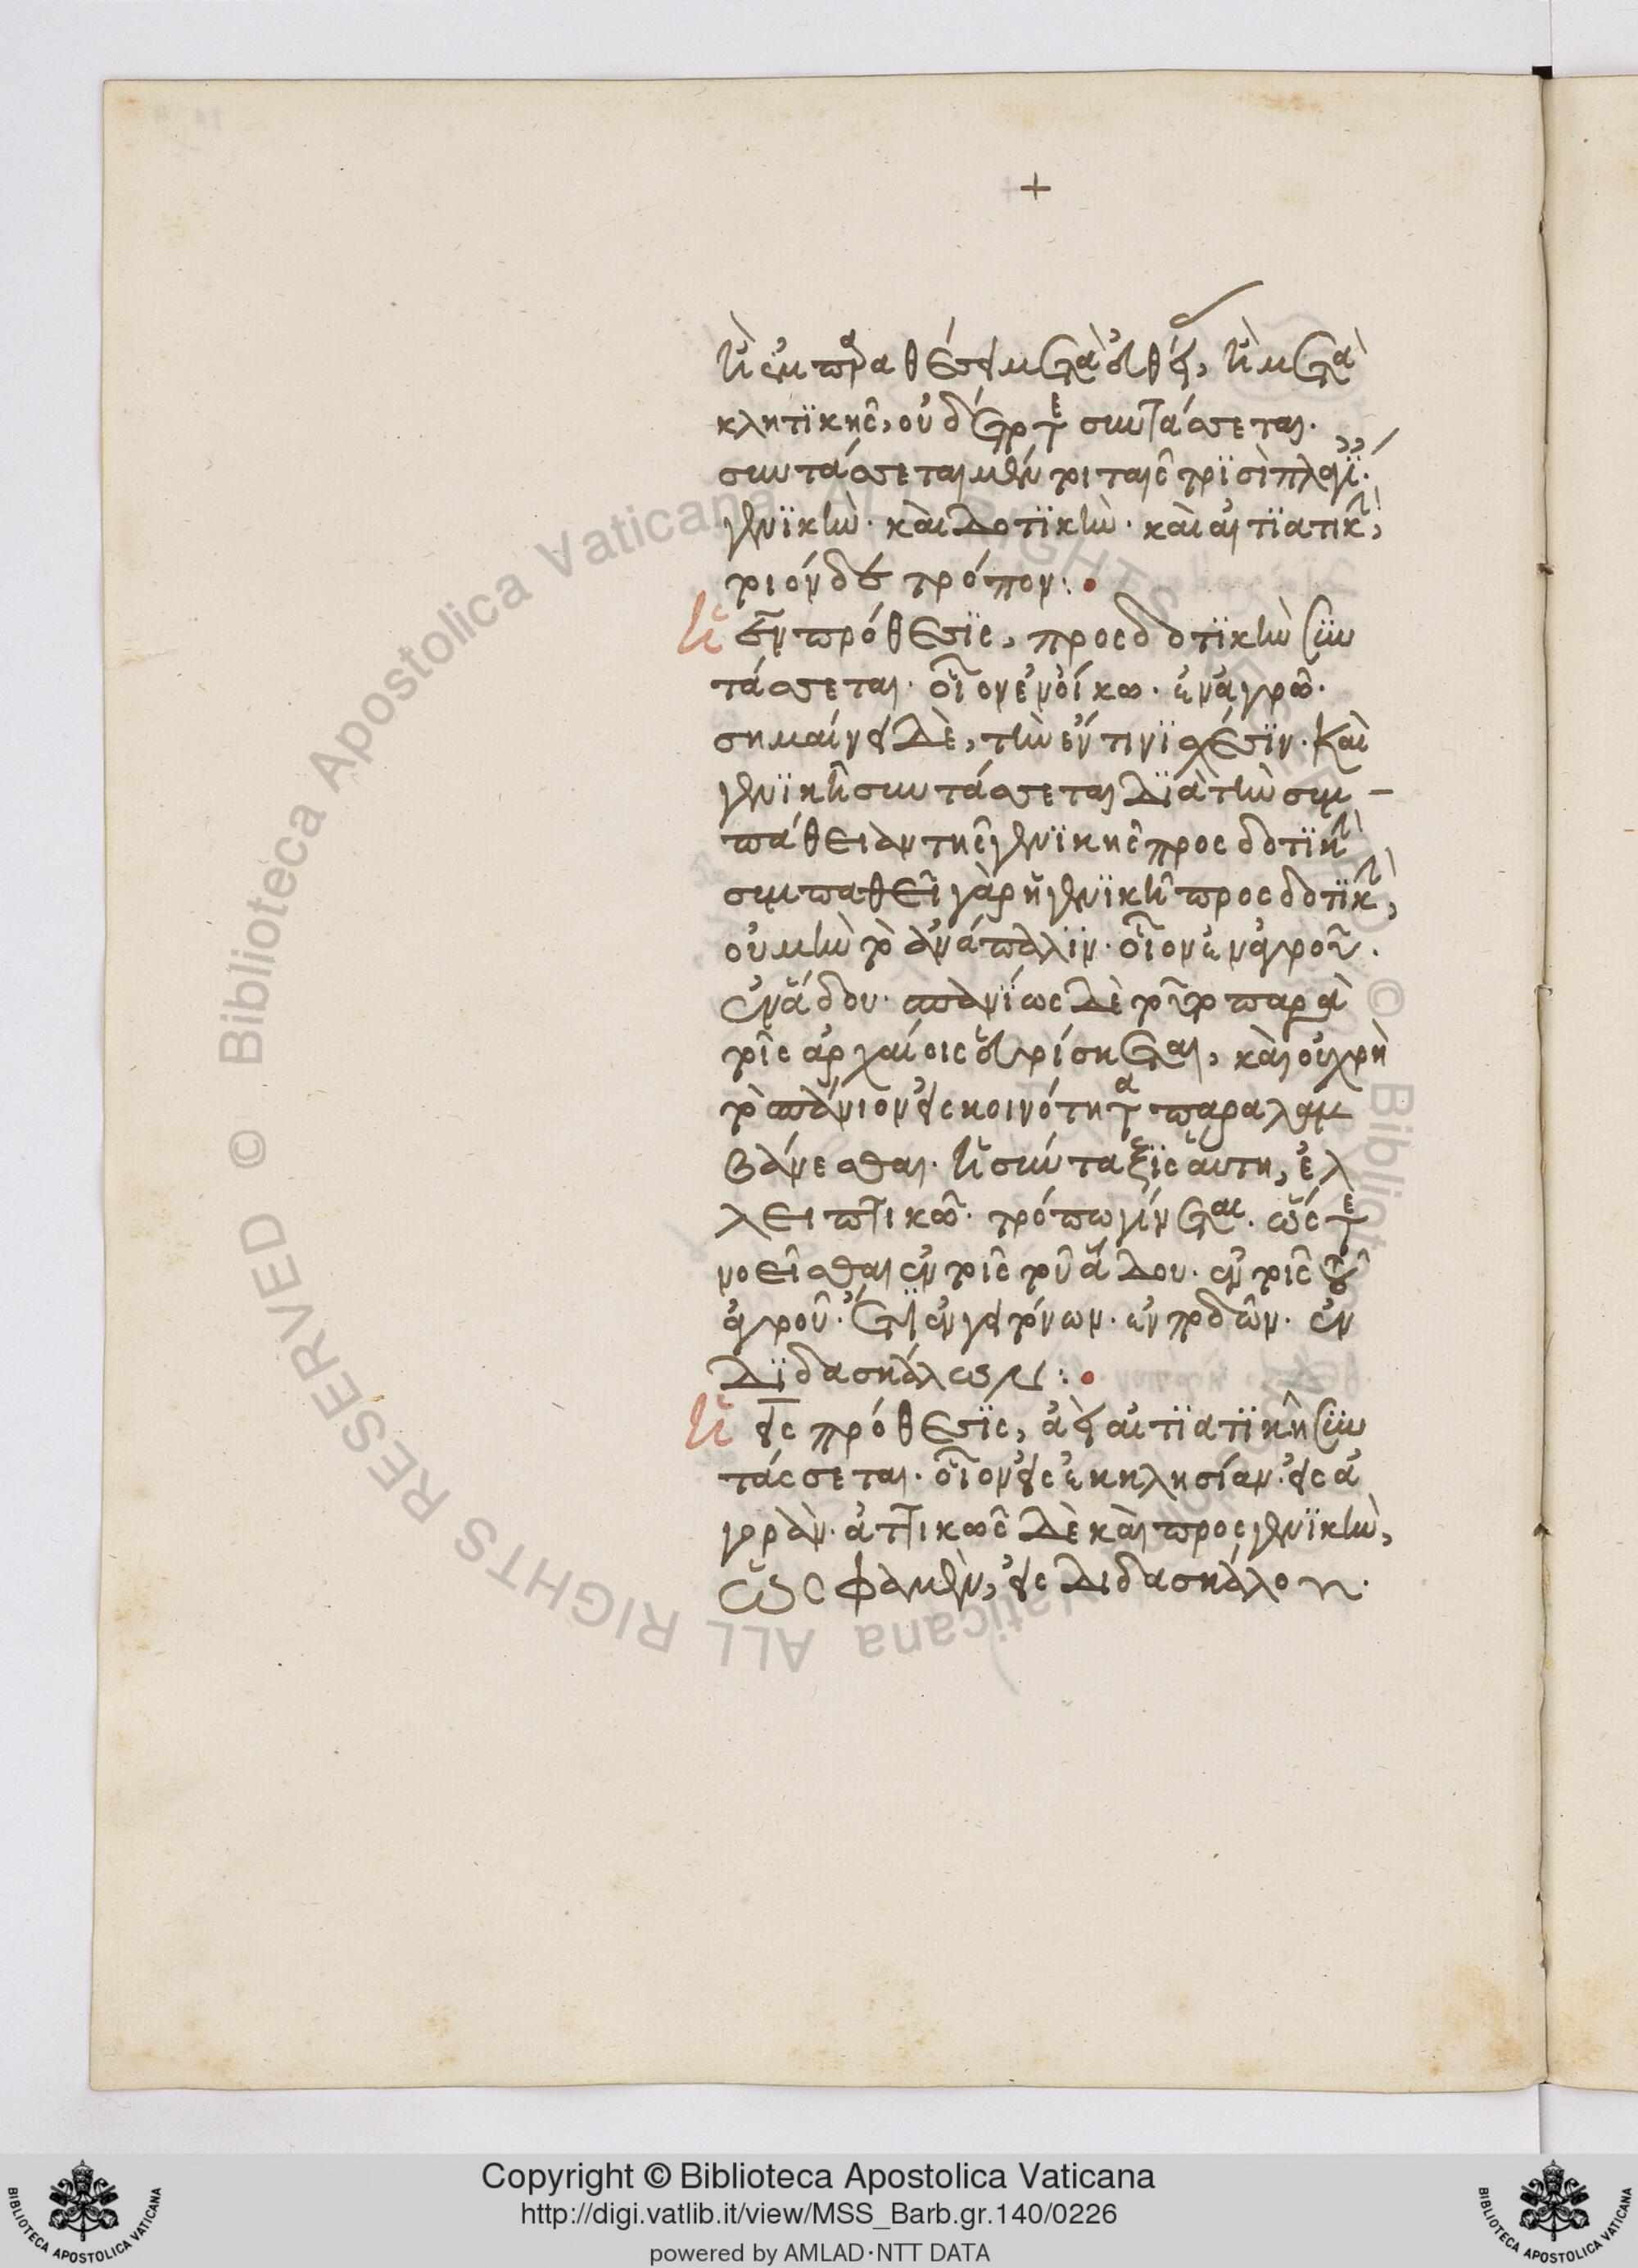 +
ἢ ἐμπαραθέσει μετὰ εὐθείας, ἢ μετὰ
κλητικῆς, οὐδέποτε συντάσσεται.
συντάσσεται μὲν ταῖς τρισὶ πλαγίαις.
γενικὴν. καὶ δοτικὴν. καὶ αἰτιατικὴν,
τοιόνδε τρόπον:
ἡ ἐν πρόθεσις, προς δοτικὴν συν
τάσσεται. οἷον ἐν οἴκω. ἐν ἀγρῶ.
σημαίνει δὲ, τὴν ἔν τινι σχέσιν. καὶ
γενικῆ συντάσσεται διὰ τὴν συμ –
πάθειαν τῆς γενικῆς προς δοτικὴν
συμπαθεῖ γὰρ ἡ γενικὴ προς δοτικὴν,
οὐ μὴν τὸ ἀνάπαλιν. οἷον ἐν ἀγροῦ.
ἐν ἅδου. σπανίως δὲ τοῦτο παρὰ
τοῖς ἀρχαίοις εὑρίσκεται, καὶ οὐ χρὴ
τὸ σπάνιον εἰς κοινότητα παραλαμ
βάνεσθαι. ἡ σύνταξις αὕτη, ἐλ
λειπτικῶ. τρόπω γίνεται. ὥστε
νοεῖσθαι ἐν τοῖς τοῦ ἅδου. ἐν τοῖς τοῦ
ἀγροῦ. ἔτι ἐν γειτόνων. ἐν παίδων. ἐν
διδασκάλων:
ἡ εις πρόθεσις, ἀεὶ αἰτιατικῆ συν
τάσσεται. οἷον εἰς ἐκκλησίαν. εἰς ἀ
γρὰν. ἀττικῶς δὲ καὶ προς γενικὴν,
ὥς φαμεν, εἰς διδασκάλου.
Copyright © Biblioteca Apostolica Vaticana
http://digi.vatlib.it/view/MSS_Barb.gr.140/0226
powered by AMLAD·NTT DATA
BIBLIOTECA APOSTOLICA VATICANA
BIBLIOTECA APOSTOLICA VATICANA
© Biblioteca Apostolica Vaticana ALL RIGHTS RESERVED © Biblioteca Apostolica Vaticana ALL RIGHTS RESERVED